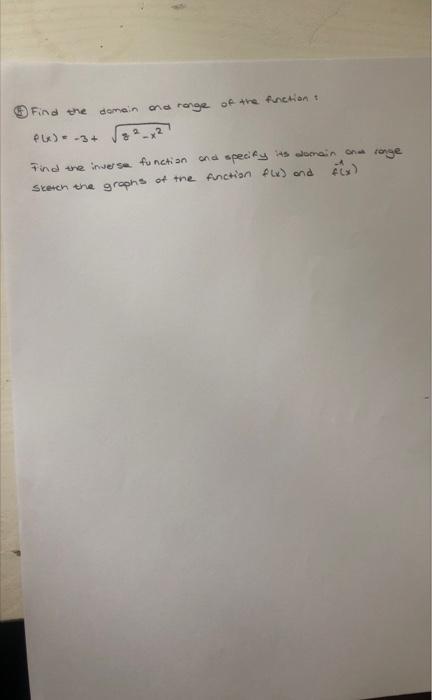 ⑤ Find the domain and range of the function :
f(x) = -3 + √(8² - x²)
Find the inverse function and specify its domain and range
Sketch the graphs of the function f(x) and f⁻¹(x)